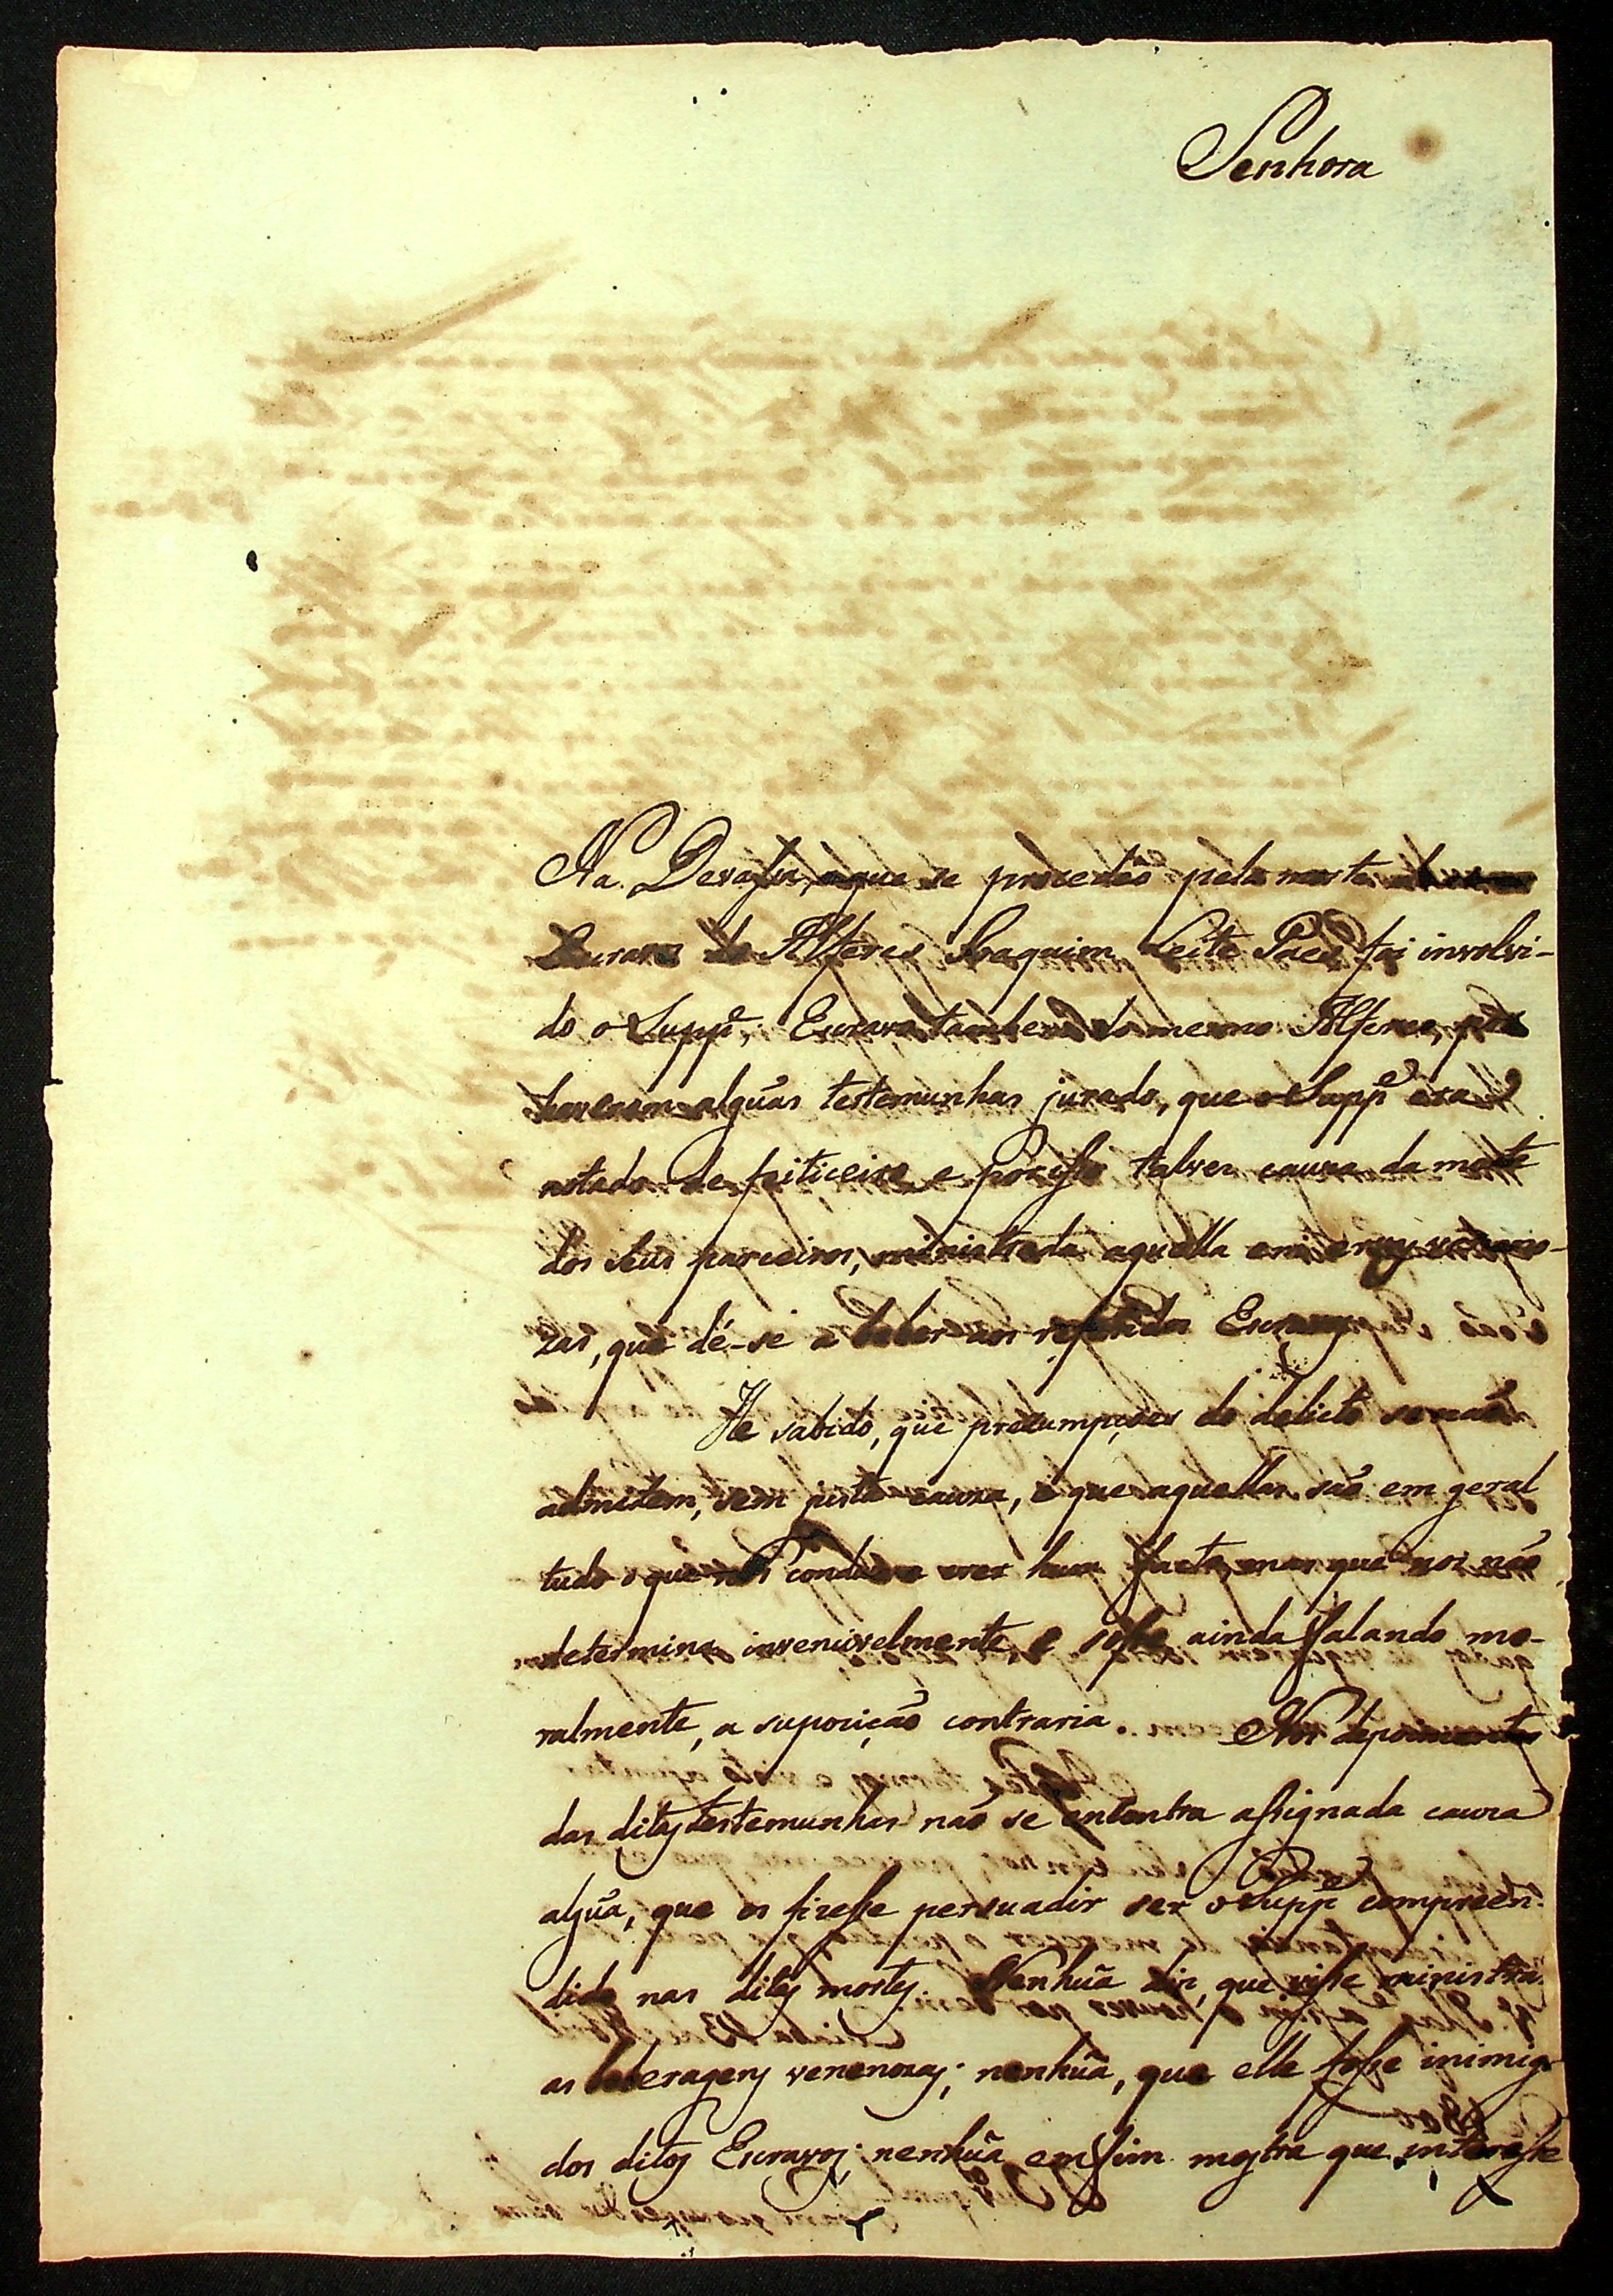 Senhora
Na Devaça, a que se procedeo pela morte de
Escravo do Alferes Joaquim Leite Paes foi involvi-
do o Supp.e, Escravo tambem do mesmo Alferes, por
haverem algũas testemunhas jurado, que o Supp.e era
notado de feiticeiro e por isso talvez cauza da morte
dos seus parceiros, ministrada aquella em
zas, que dé-se a beber aos referidos Escravos
He sabido, que prezumpçoes do delicto se não
admitem, sem justa cauza, e que aquellas são em geral
tudo o que nos conduz a crer hum facto, mas que nos não
determina invencivelmente, e sofre ainda falando mo-
ralmente, a supozição contraria. Nos depoimentos
das ditas testemunhas não se encontra assignada cauza
algũa, que os fizesse persuadir ser o Supp.e compreen-
dido nas ditas mortes. Nenhũa diz, que visse ministrar
as beberagens venenozas; nenhũa, que elle fosse inimigo
dos ditos Escravos; nenhũa em fim mostra que interesse